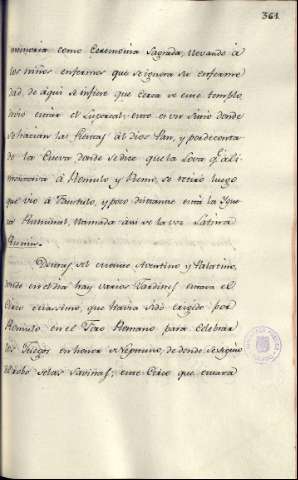 361
memoria como Ceremonia Sagrada, llevando á
los niños enfermos que se ignora su enferme
dad, de aqui se infiere que cerca de este templo
devió estar el Lupercal, esto es un Sitio donde
se hacian las fiestas ál dios Pan, y poco distante
de la Cueva donde se dice que la Lova q.e ali
mentava á Romulo y Remo, se retiró luego
que vió á Faustulo, y poco distante está la Igue
ra Ruminal, llamada asi de la voz Latina
Rumis.
Detras del monte Aventino y Palatino,
donde en el dia hay varios Jardines estava el
Circo maximo, que havia sido erigido por
Romulo en el Foro Romano para celebrar
los Juegos en honor de Neptuno, de donde se siguio
el robo de las Savinas; este Circo que estava